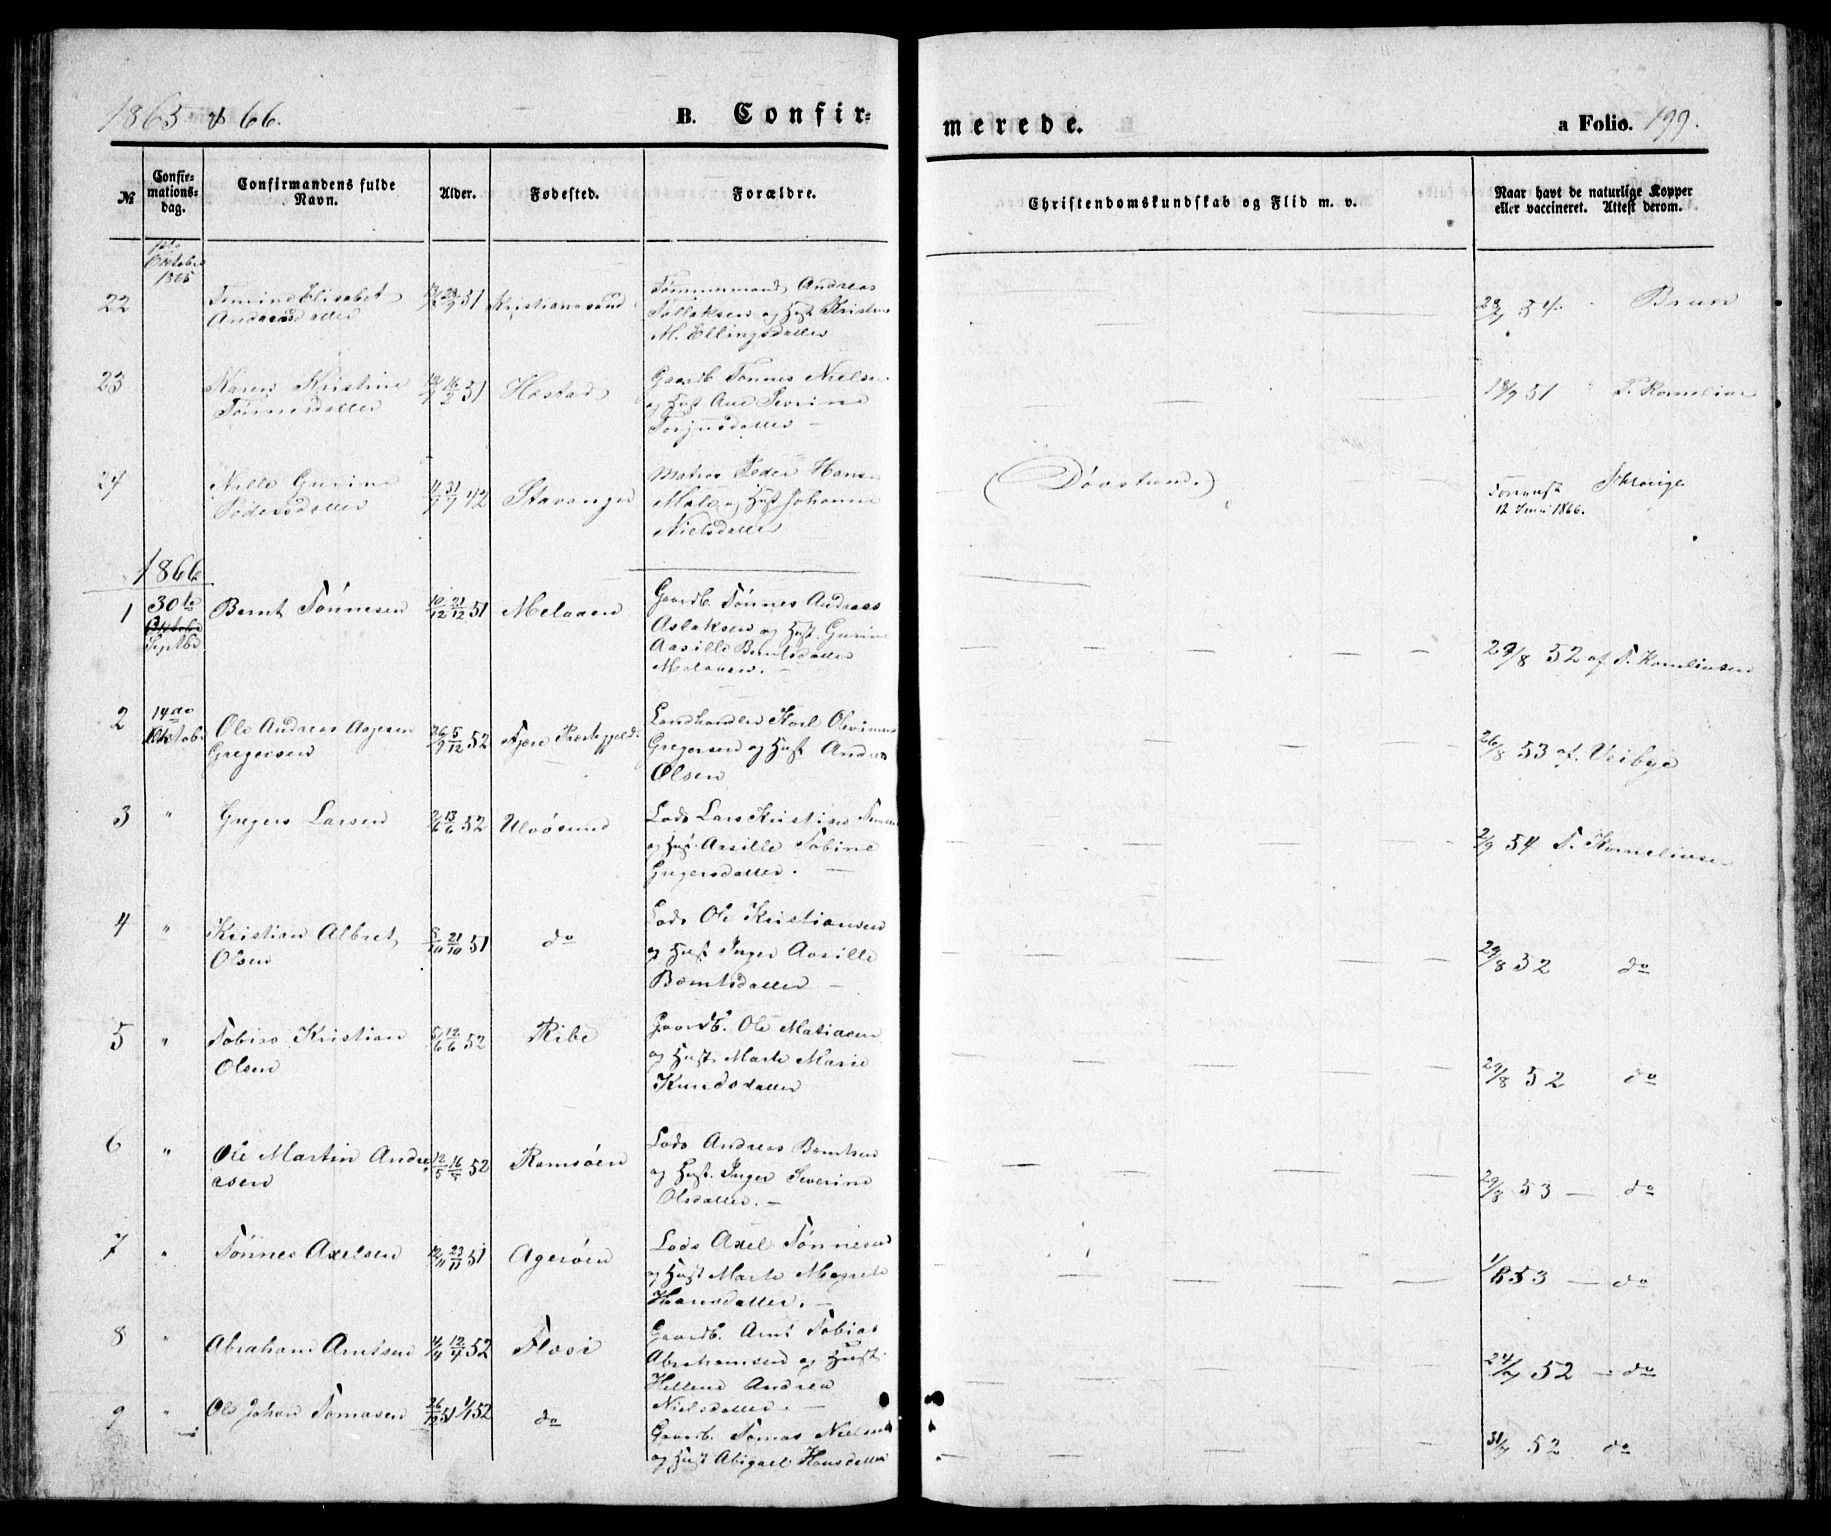 1865 & 66.
B. Confir-
merede.
a Folio. 199.
№
Confir-
mations-
dag.
Confirmandens fulde
Navn.
Alder.
Fødested.
Forældre.
Christendomskundskab og Flid m. v.
Naar havt de naturlige Kopper
eller vaccineret. Attest derom.
1ste
Oktober
1865
22
Elisabet
Kristianssand
Tømmermand Andreas
Tallaksen og Hust Kristine
M. Ellingsdatter
54
Brun
23
Karen Kristine
Tønnesdatter
51
Hæstad
Gaardb. Tønnes Nielsen
og Hust Ane Severine
Torjusdatter –
18/9 51 T. Kornelius
24
Nille Gurine
Pedersdatter
Stavanger
Matros Peder Hansen
og Hust Johanne
Nielsdatter
(Døvstum.)
12 Juni 1866.
1866
1
30te
Septbr
Bernt Tønnesen
10/12 21/12 51
Melaaen
Gaardb. Tønnes Andreas
Aslaksen og Hust. Gurine
Aasille Berntsdatter
Melaaen. –
29/8 52 af T. Korneliusen
2
14de
Oktobr
Ole Andreas Agesen
Gregersen
26/9 5/12 52
Fjære Præstegjeld.
Landhandler Karl Olevinus
Gregersen og Hust Andrea
Olsen
26/8 53 af Veibye
3 "
Gregers Larsen
2/6 13/6 52
Ulvøsund
Lods Lars Kristian
og Hust. Aasille Tobine
Gregersdatter. –
2/9 54 T. Korneliusen
4 "
Kristian Albret
Olsen
5/10 21/10 51
do
Lods Ole Kristiansen
og Hust Inger Aasille
Berntsdatter –
29/8 52 do
5 "
Tobias Kristian
Olsen
5/6 12/6 52
Ribe
Gaardb. Ole Matiasen
og Hust. Marte Marie
Knudsdatter
29/8 52 do
6 "
Ole Martin Andre-
asen
12/5 16/5 52
Ramsøen
Lods Andreas Berntsen
og Hust. Inger Severine
Olsdatter. –
29/8 53 – do
7 "
Tønnes Axelsen
12/11 23/11 51
Agerøen
Lods Axel Tønnesen
og Hust Marte Magrete
Hansdatter. –
53 – do
8 "
Abraham Arntsen
4/4 12/4 52
Fløsi
Gaardb. Arnt Tobias
Abrahamsen og Hust.
Hellene Andrea
Nielsdatter. –
24/7 52 – do
9 "
Ole Johan Tomasen
26/12 51 1/1 52
do
Gaardb. Tomas Nielsen
og Hust Abigael Hansdatter
31/7 52 do